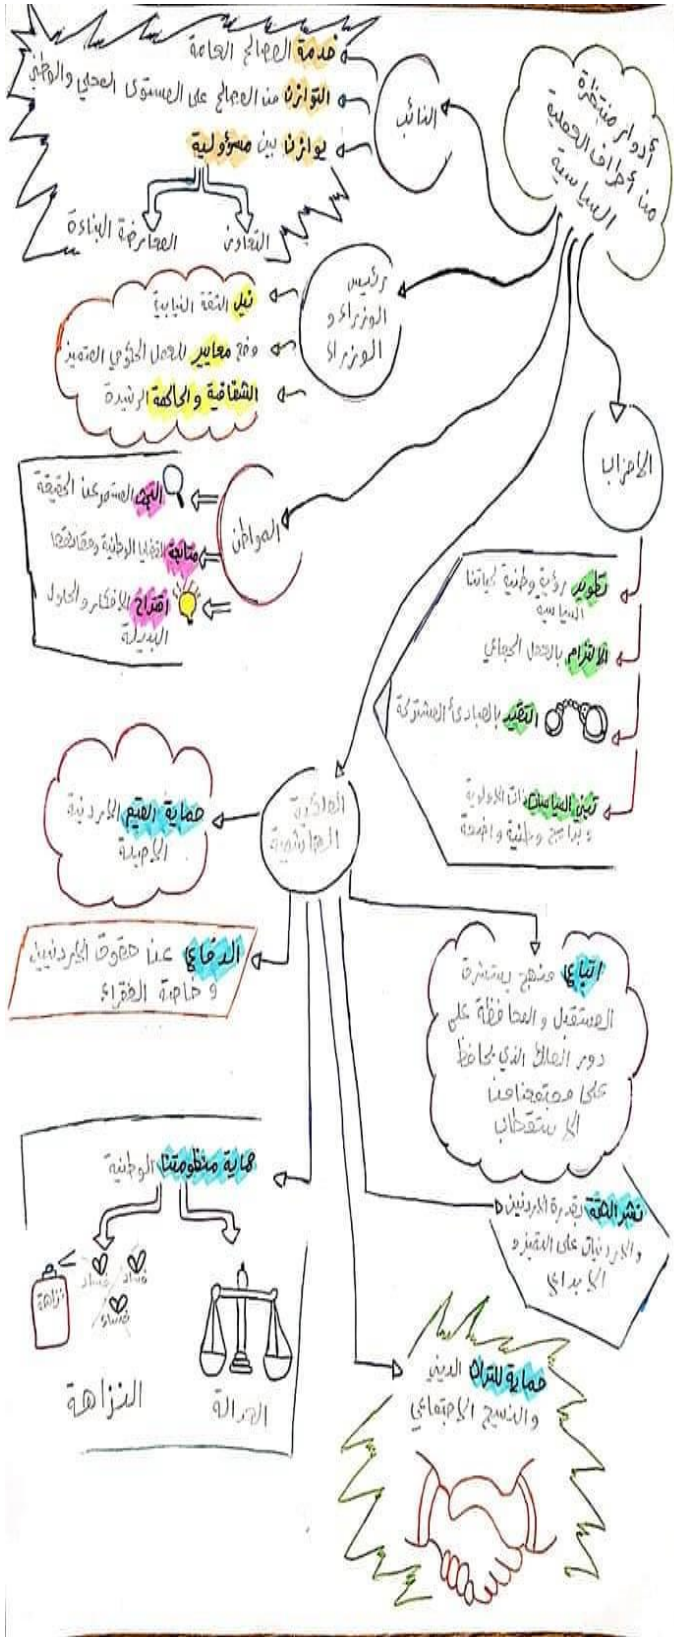 أدوار منتظرة
من أطراف العملية
السياسية
النائب
خدمة المصالح العامة
التوازن من المصالح على المستوى المحلي والوطني
يوازن بين مسؤولية
التعاون
المعارضة البناءة
رئيس
الوزراء و
الوزراء
نيل الثقة النيابية
وضع معايير للعمل الحكومي المتميز
الشفافية والحاكمية الرشيدة
المواطن
البحث المستمر عن الحقيقة
متابعة القضايا الوطنية
اقتراح الأفكار والحلول
البديلة
الأحزاب
تطوير رؤية وطنية لحياتنا
السياسية
الالتزام بالعمل الجماعي
التقيد بالمبادئ المشتركة
تبني السياسات ذات الأولوية
وبرامج وطنية واضحة
الملكية
الهاشمية
حماية القيم الأردنية
الأصيلة
الدفاع عن حقوق الأردنيين
وخاصة الفقراء
حماية منظومتنا الوطنية
نزاهة
فساد
فساد
فساد
النزاهة
العدالة
اتباع منهج يستشرف
المستقبل والمحافظة على
دور الملك الذي يحافظ
على مجتمعنا من
الاستقطاب
نشر الثقة بقدرة الأردنيين
والأردنيات على التميز و
الإبداع
حماية للتراث الديني
والنسيج الاجتماعي